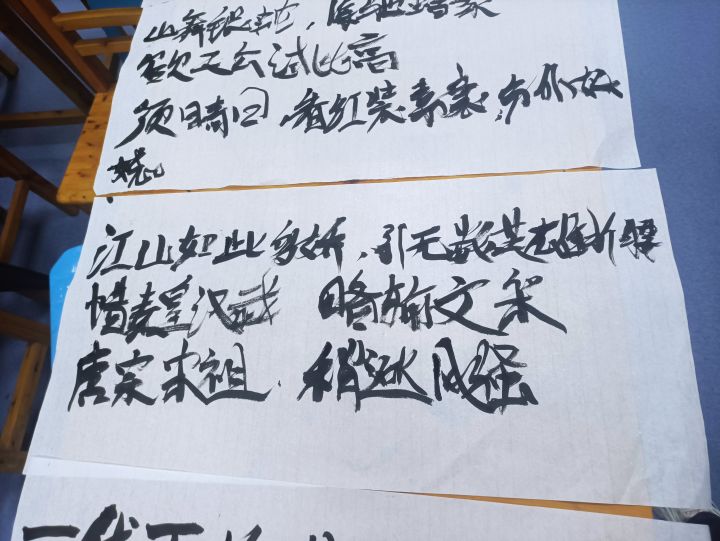 山舞银蛇，原驰蜡象
欲天公试比高
须晴日，看红装素裹，分外妖
娆
江山如此多娇，引无数英雄折腰
惜秦皇汉武 略输文采
唐宗宋祖，稍逊风骚
一代天